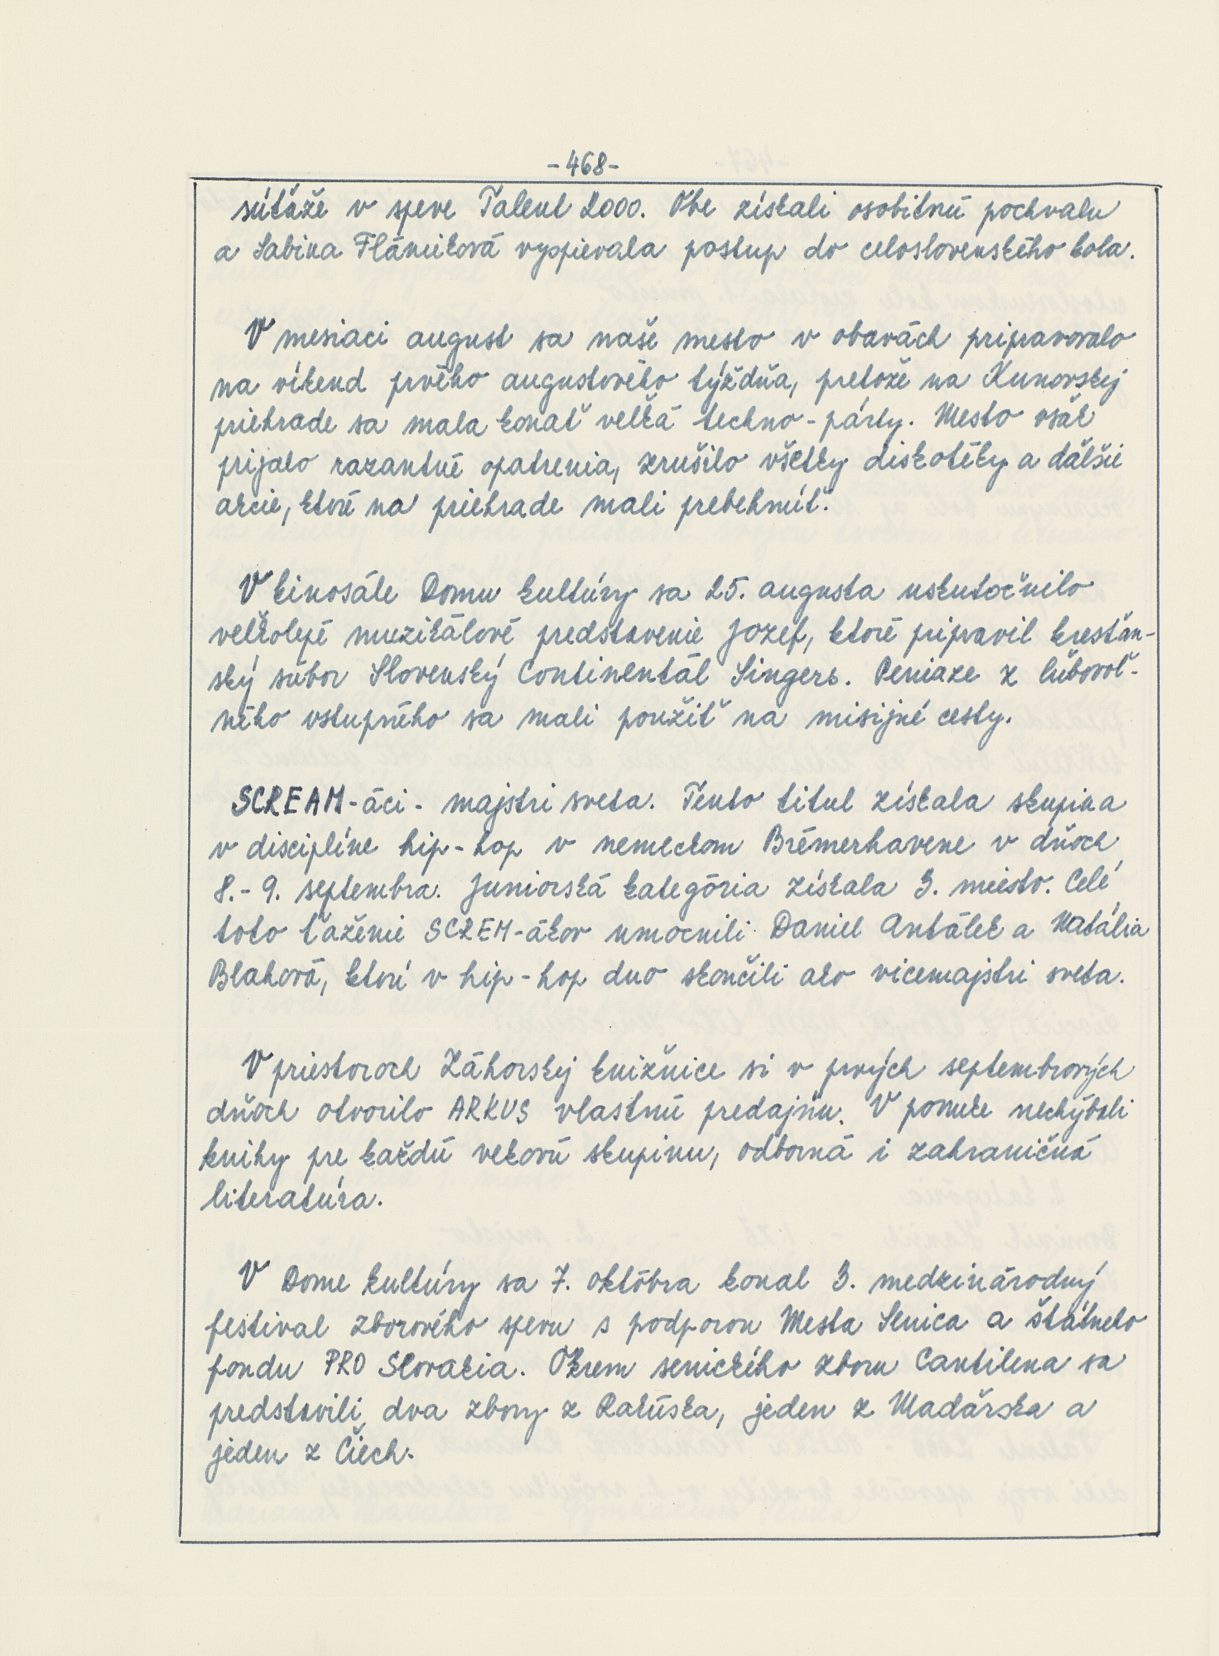 -468-
súťaže v speve Talent 2000. Obe získali osobitnú pochvalu
a Sabina Flámiková vyspievala postup do celoslovenského kola.
V mesiaci august sa naše mesto v obavách pripravovalo
na víkend prvého augustového týždňa, pretože na Kunovskej
priehrade sa mala konať veľká techno-párty. Mesto však
prijalo razantné opatrenia, zrušilo všetky diskotéky a ďalšie
akcie, ktoré na priehrade mali prebehnúť.
V kinosále Domu kultúry sa 25. augusta uskutočnilo
veľkolepé muzikálové predstavenie Jozef, ktoré pripravil kresťan-
ský súbor Slovenský Continentál Singers. Peniaze z ľubovoľ-
ného vstupného sa mali použiť na misijné cesty.
SCREAM-áci - majstri sveta. Tento titul získala skupina
v disciplíne hip-hop v nemeckom Brémerhavene v dňoch
8.-9. septembra. Juniorská kategória získala 3. miesto. Celé
toto ťaženie SCREM-ákov umocnili Daniel Antálek a Natália
Blahová, ktorí v hip-hop duo skončili ako vicemajstri sveta.
V priestoroch Záhorskej knižnice si v prvých septembrových
dňoch otvorilo ARKUS vlastnú predajňu. V ponuke nechýbali
knihy pre každú vekovú skupinu, odborná i zahraničná
literatúra.
V Dome kultúry sa 7. októbra konal 3. medzinárodný
festival zborového spevu s podporou Mesta Senica a štátneho
fondu PRO Slovakia. Okrem senického zboru Cantilena sa
predstavili dva zbory z Rakúska, jeden z Maďarska a
jeden z Čiech.